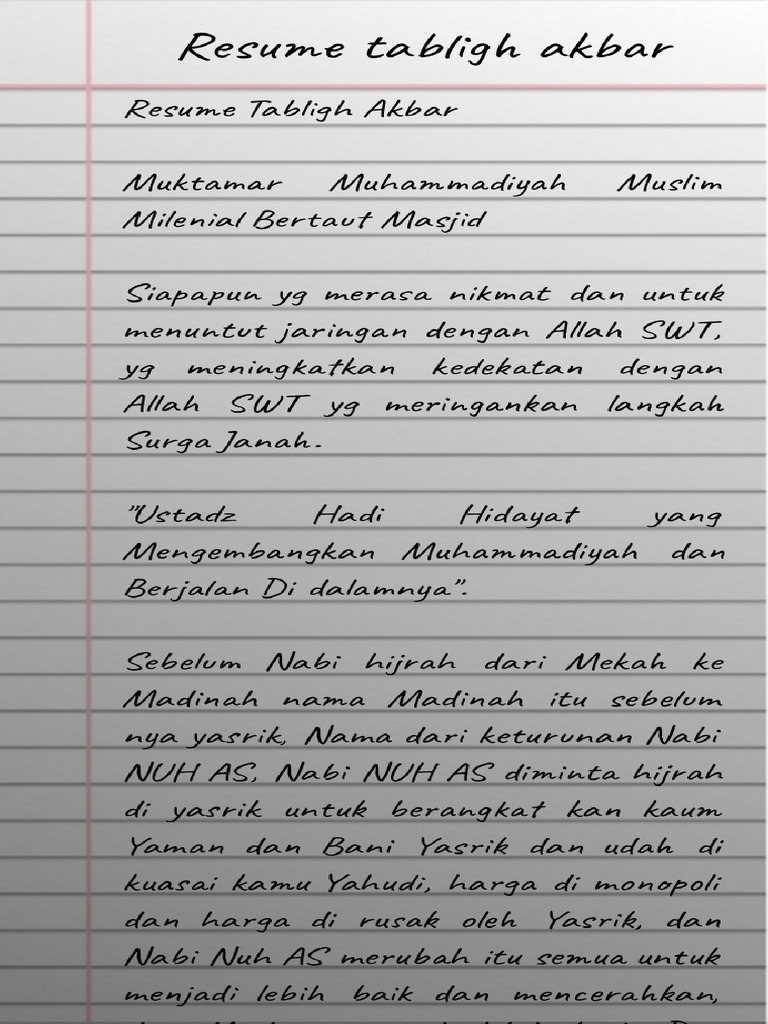 Resume tabligh akbar
Resume Tabligh Akbar
Muktamar Muhammadiyah Muslim
Milenial Bertaut Masjid
Siapapun yg merasa nikmat dan untuk
menuntut jaringan dengan Allah SWT,
yg meningkatkan kedekatan dengan
Allah SWT yg meringankan langkah
Surga Janah.
"Ustadz Hadi Hidayat yang
Mengembangkan Muhammadiyah dan
Berjalan Di dalamnya".
Sebelum Nabi hijrah dari Mekah ke
Madinah nama Madinah itu sebelum
nya yasrik, Nama dari keturunan Nabi
NUH AS, Nabi NUH AS diminta hijrah
di yasrik untuk berangkat kan kaum
Yaman dan Bani Yasrik dan udah di
kuasai kamu Yahudi, harga di monopoli
dan harga di rusak oleh Yasrik, dan
Nabi Nuh AS merubah itu semua untuk
menjadi lebih baik dan mencerahkan,